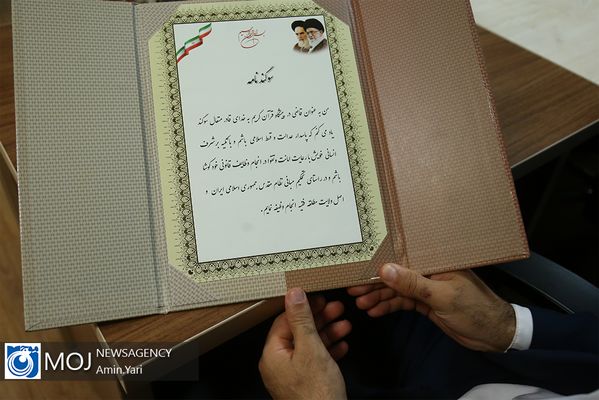 سوگندنامه
من به عنوان قاضی در پیشگاه قرآن کریم به خدای قادر متعال سوگند
یاد می کنم که پاسدار عدالت و قسط اسلامی باشم و با تکیه بر شرف
انسانی خویش با رعایت امانت و تقوا در انجام وظایف قانونی خود کوشا
باشم و در راستای تحکیم مبانی نظام مقدس جمهوری اسلامی ایران و
اصل ولایت مطلقه فقیه انجام وظیفه نمایم.
MOJ NEWSAGENCY
Amin.Yari